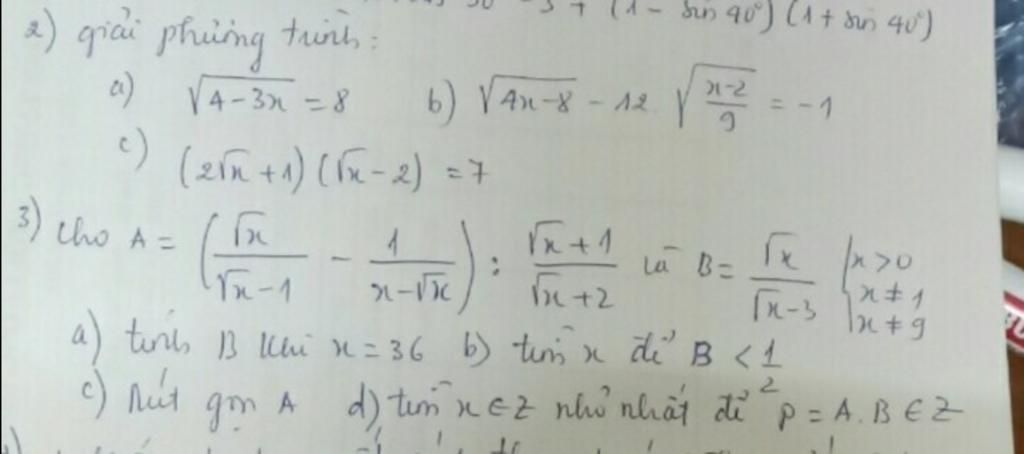 - 3 + (1 - sin 40°) (1 + sin 40°)
2) giải phương trình:
a) √(4-3x) = 8 b) √(4x-8) - 12 √((x-2)/9) = -1
c) (2√x + 1) (√x - 2) = 7
3) Cho A = (√x/(√x-1) - 1/(x-√x)) : (√x+1)/(√x+2) và B = √x/(√x-3) { x > 0
x ≠ 1
x ≠ 9
a) tính B khi x = 36 b) tìm x để B < 1/2
c) Rút gọn A d) tìm x ∈ Z nhỏ nhất để P = A.B ∈ Z